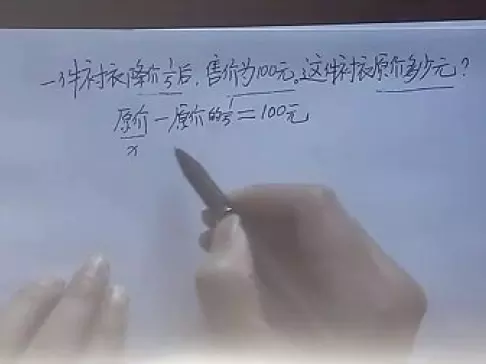 一件衬衣降价1/5后,售价为100元。这件衬衣原价多少元?
原价-原价的1/5=100元
x